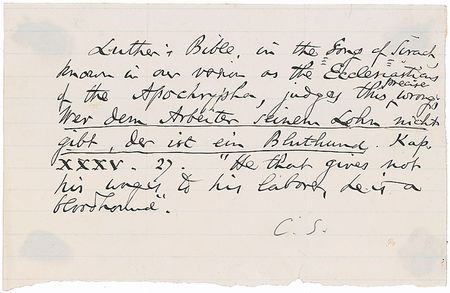 Luther's Bible, in the Song of Sirach,
known in our version as the Ecclesiasticus
of the Apochrypha, judges this precise wrong:
Wer dem Arbeiter seinem Lohn nicht
gibt, der ist ein Bluthund. Kap.
XXXV. 27. "He that gives not
his wages to his laborer, he is a
bloodhound".
C. S.